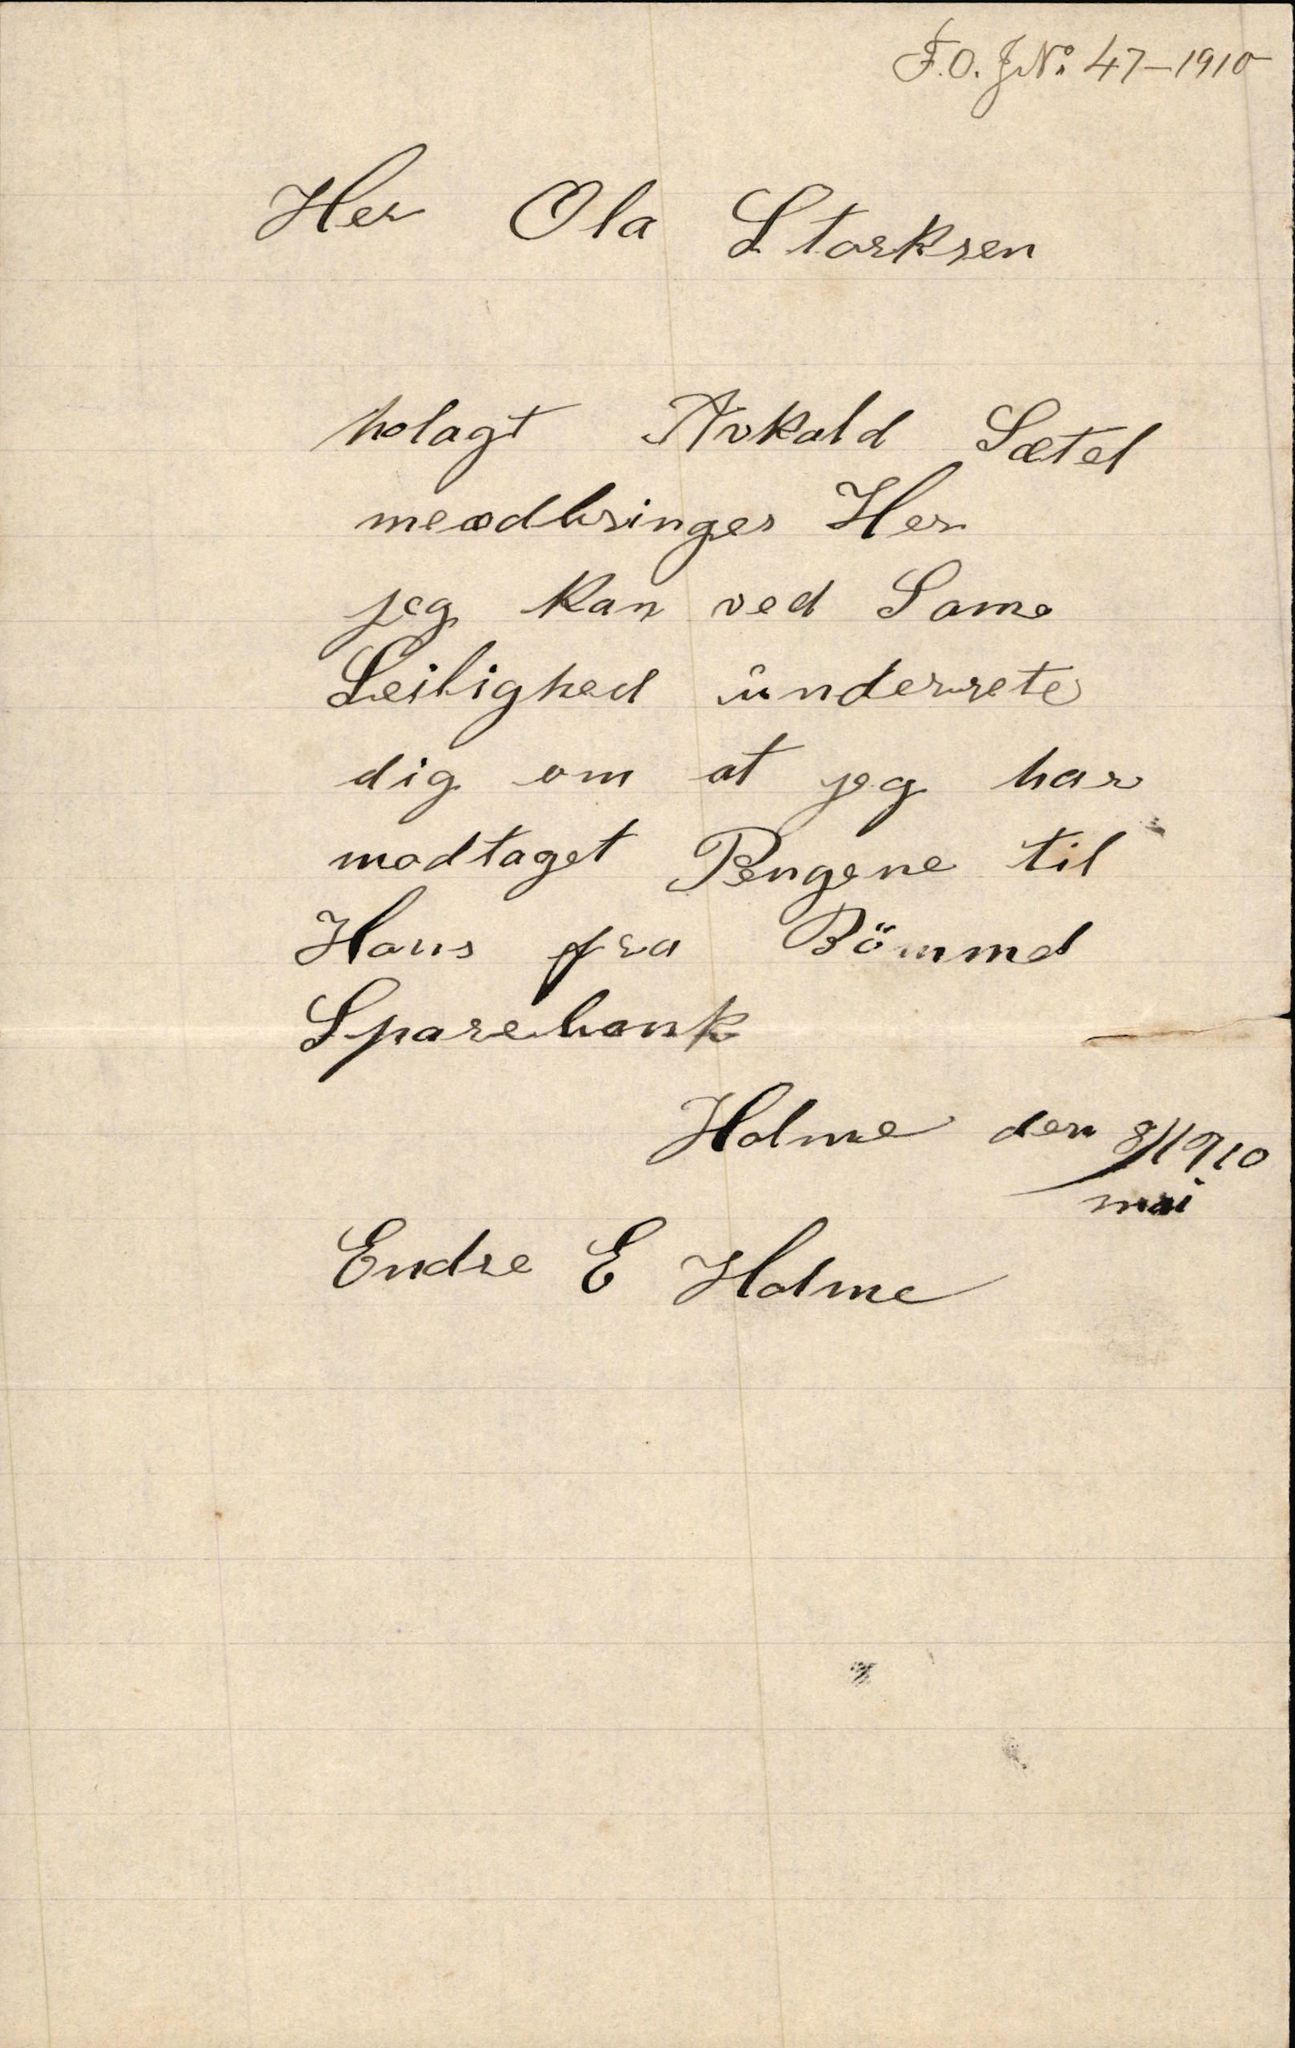 F.O. JNo 47-1910
Her Ola Storksen
holagt Avkald Sætel
meedbringes Her
jeg kan ved Same
Leilighed underrete
dig om at jeg har
modtaget Pengene til
Hans fra Bömmel
Sparebank
Holme den 8/1910
mai
Endre E Holme